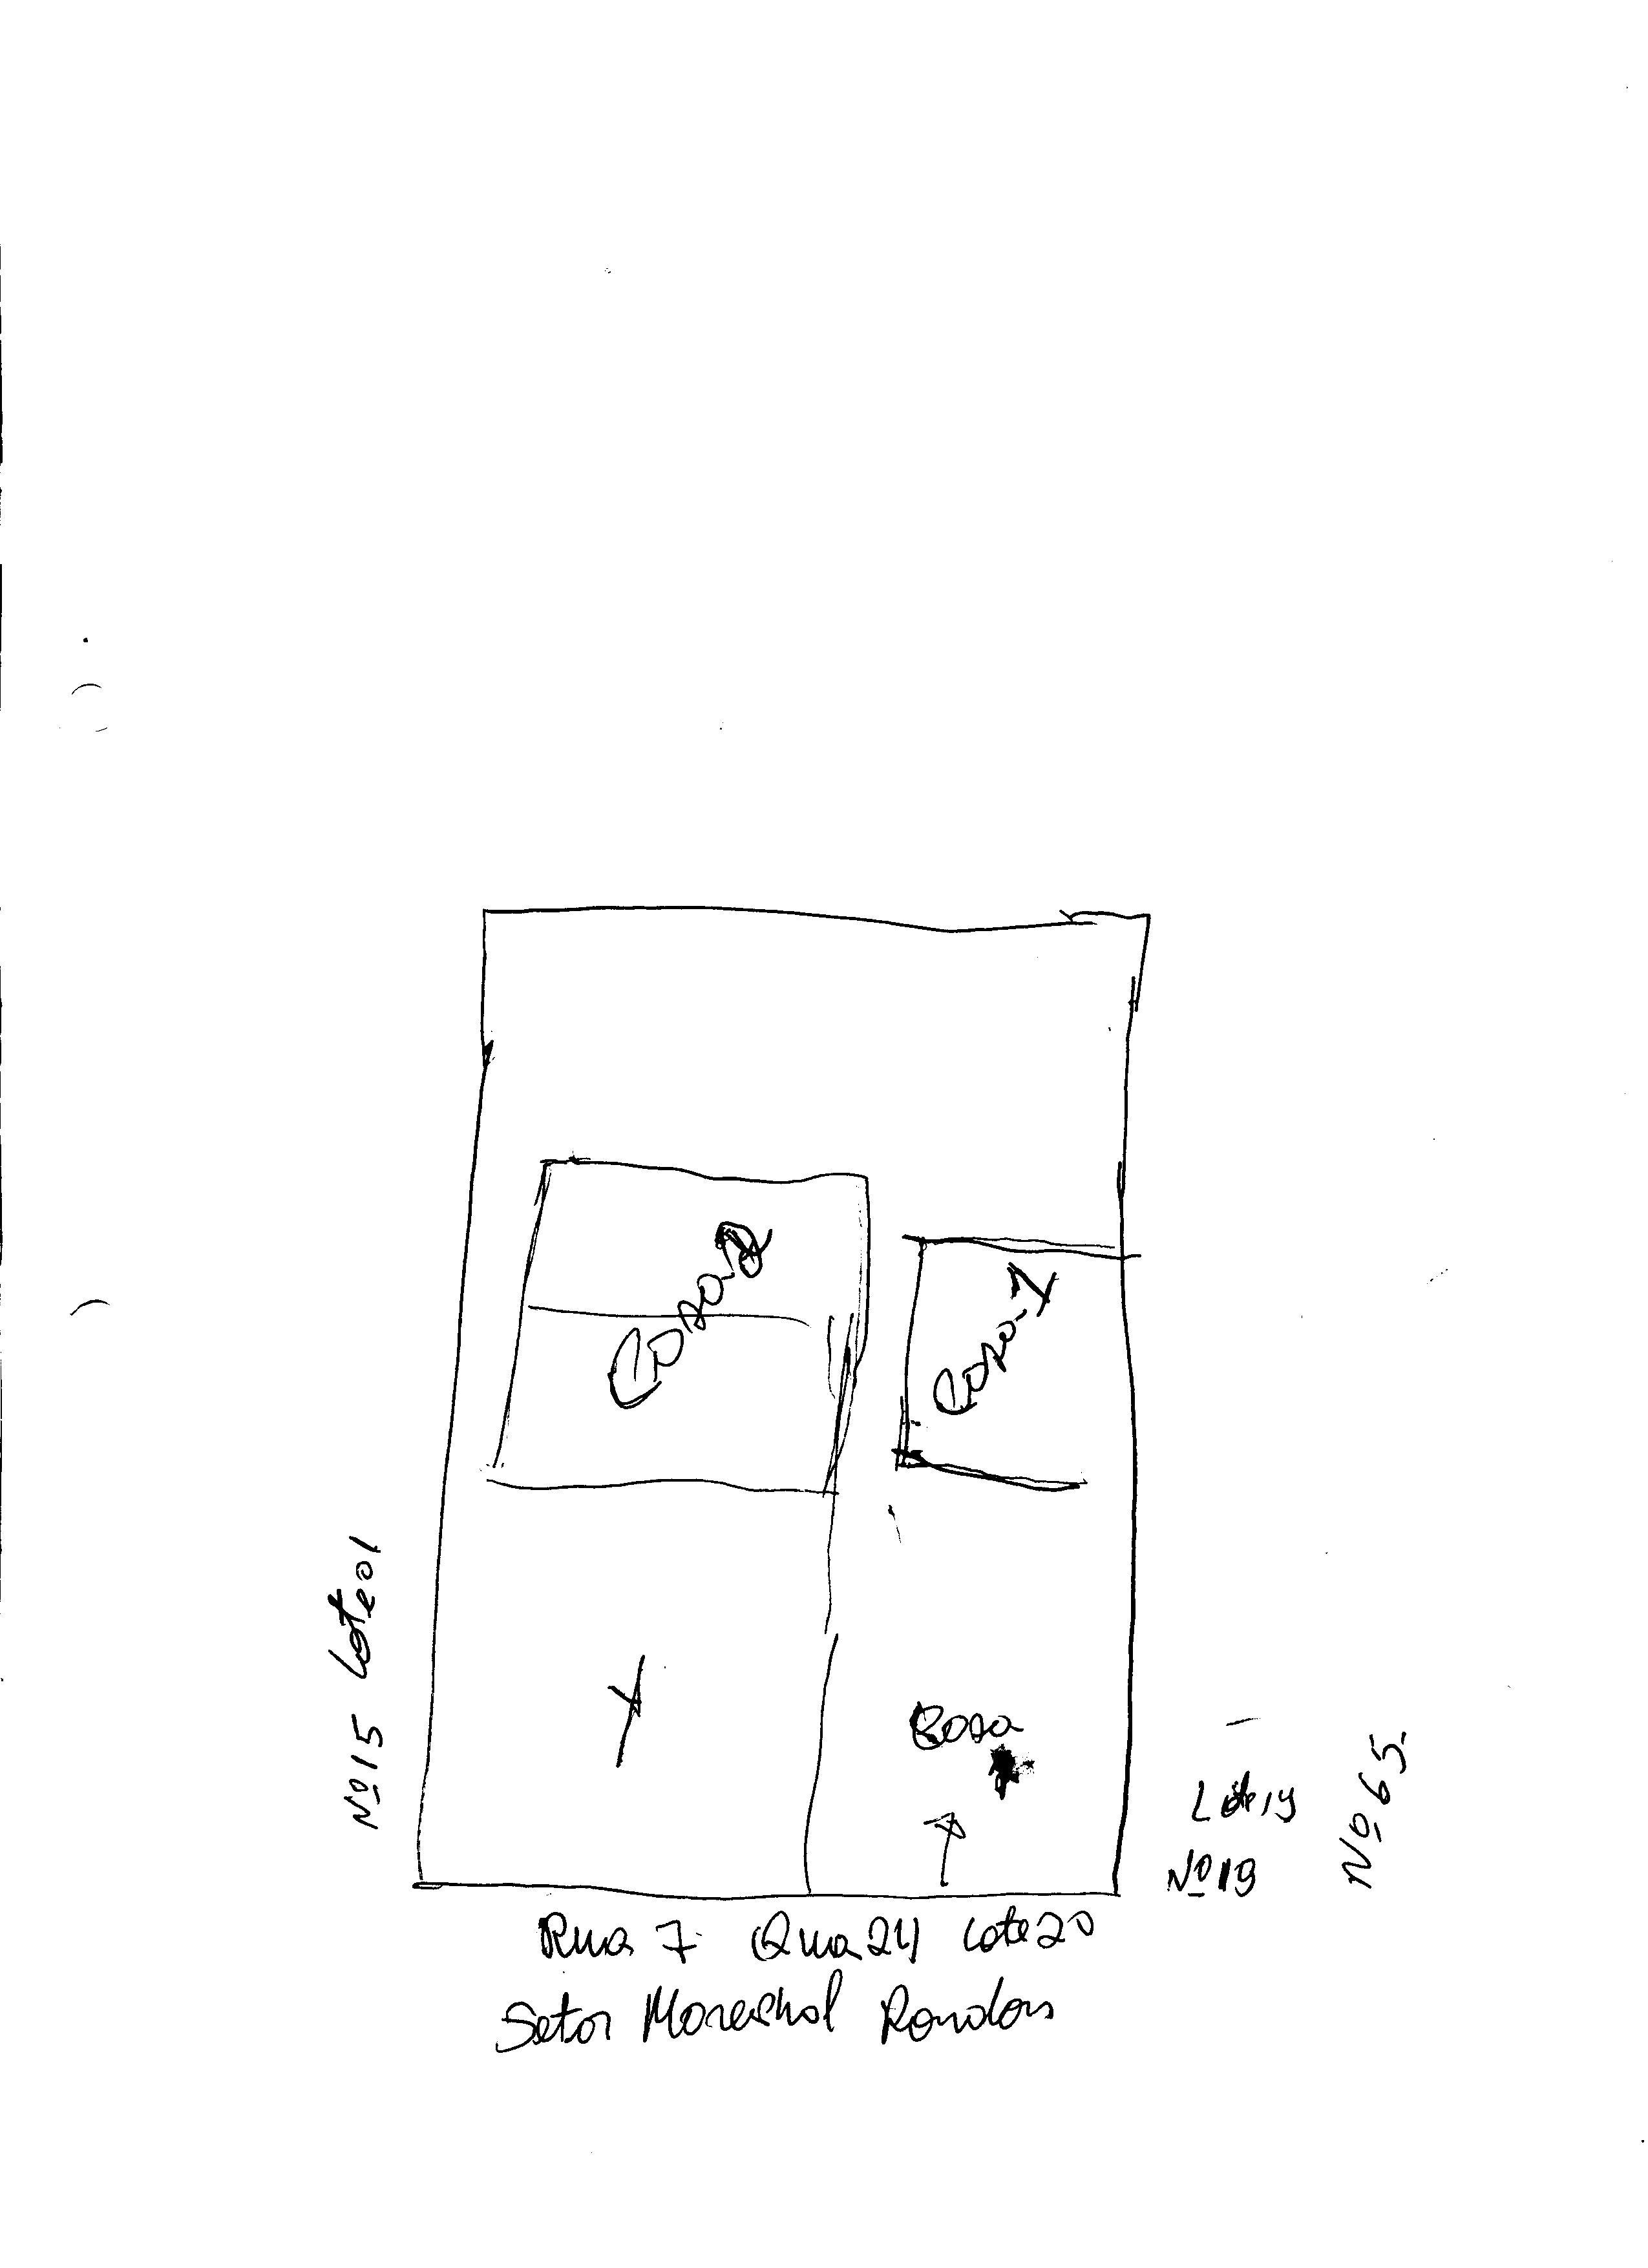 Casa-2
Casa-1
Nº 15 Lote 01
Casa
Lote 19
Nº 19
Nº 65
Rua 7 Qua 24 Lote 20
Setor Mareshal Rondon